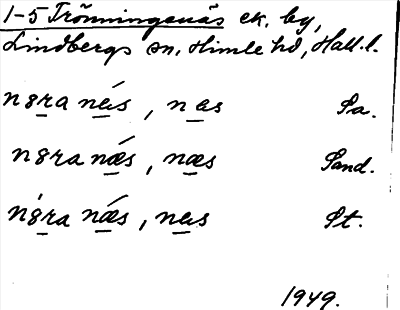 1-5 Trönningenäs ek. by,
Lindbergs sn, Himle hd, Hall. l.
nɞra nǽs, næs Sa.
nɞra nǽs, næs Sand.
nɞ́ra nǽs, næs St.
1949.